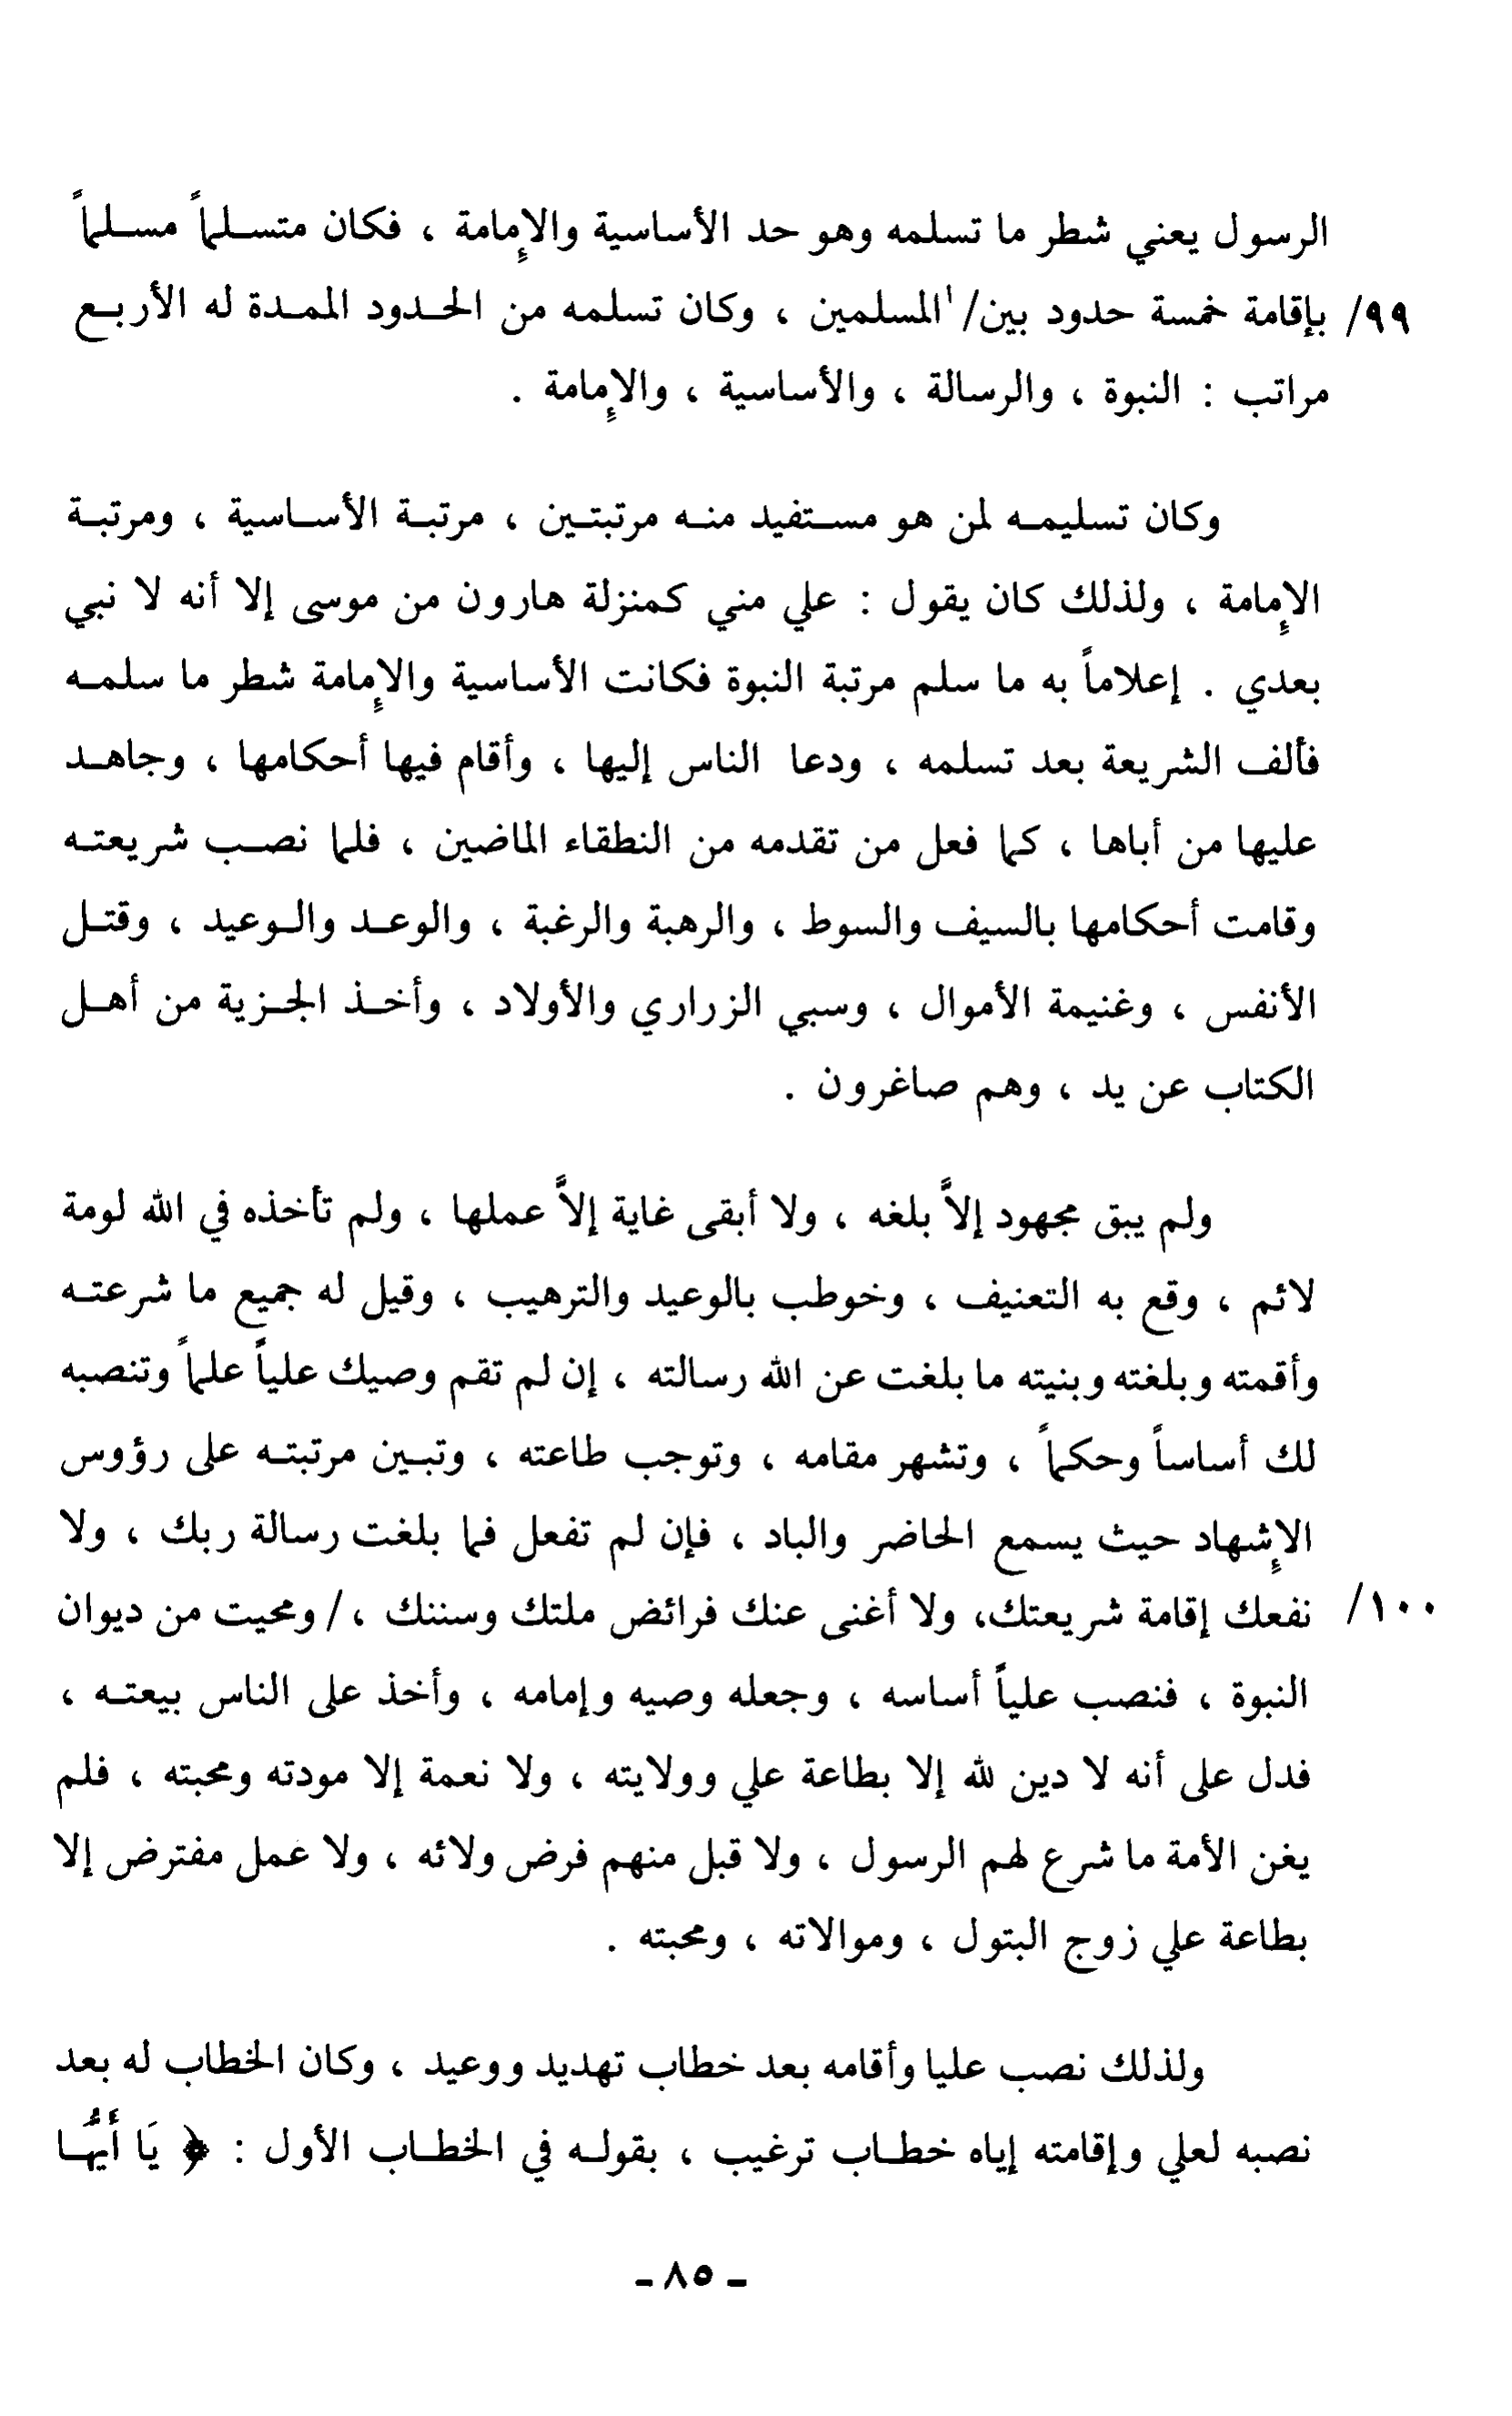 الرسول يعني شطر ما تسلمه وهو حد الأساسية والإمامة ، فكان متسلماً مسلماً
٩٩/ بإقامة خمسة حدود بين/ المسلمين ، وكان تسلمه من الحدود الممدة له الأربع
مراتب : النبوة ، والرسالة ، والأساسية ، والإمامة .
وكان تسليمه لمن هو مستفيد منه مرتبتين ، مرتبة الأساسية ، ومرتبة
الإمامة ، ولذلك كان يقول : علي مني كمنزلة هارون من موسى إلا أنه لا نبي
بعدي . إعلاماً به ما سلم مرتبة النبوة فكانت الأساسية والإمامة شطر ما سلمه
فألف الشريعة بعد تسلمه ، ودعا الناس إليها ، وأقام فيها أحكامها ، وجاهد
عليها من أباها ، كما فعل من تقدمه من النطقاء الماضين ، فلما نصب شريعته
وقامت أحكامها بالسيف والسوط ، والرهبة والرغبة ، والوعد والوعيد ، وقتل
الأنفس ، وغنيمة الأموال ، وسبي الزراري والأولاد ، وأخذ الجزية من أهل
الكتاب عن يد ، وهم صاغرون .
ولم يبق مجهود إلاً بلغه ، ولا أبقى غاية إلاً عملها ، ولم تأخذه في الله لومة
لائم ، وقع به التعنيف ، وخوطب بالوعيد والترهيب ، وقيل له جميع ما شرعته
وأقمته وبلغته وبنيته ما بلغت عن الله رسالته ، إن لم تقم وصيك علياً علماً وتنصبه
لك أساساً وحكماً ، وتشهر مقامه ، وتوجب طاعته ، وتبين مرتبته على رؤوس
الإشهاد حيث يسمع الحاضر والباد ، فإن لم تفعل فما بلغت رسالة ربك ، ولا
١٠٠/ نفعك إقامة شريعتك، ولا أغنى عنك فرائض ملتك وسننك ،/ ومحيت من ديوان
النبوة ، فنصب علياً أساسه ، وجعله وصيه وإمامه ، وأخذ على الناس بيعته ،
فدل على أنه لا دين لله إلا بطاعة علي وولايته ، ولا نعمة إلا مودته ومحبته ، فلم
يغن الأمة ما شرع لهم الرسول ، ولا قبل منهم فرض ولائه ، ولا عمل مفترض إلا
بطاعة علي زوج البتول ، وموالاته ، ومحبته .
ولذلك نصب عليا وأقامه بعد خطاب تهديد ووعيد ، وكان الخطاب له بعد
نصبه لعلي وإقامته إياه خطاب ترغيب ، بقوله في الخطاب الأول : ﴿ يَا أَيُّهَا
ـ ٨٥ ـ